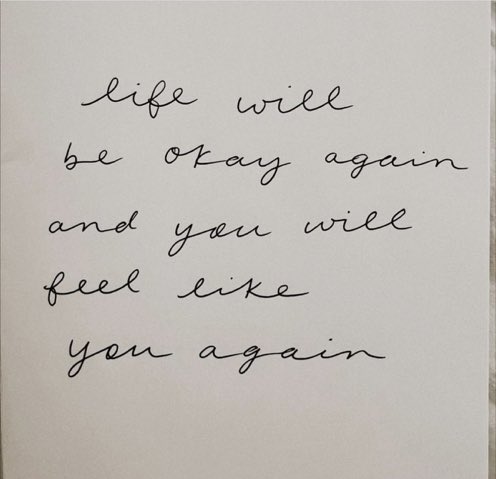 life will
be okay again
and you will
feel like
you again